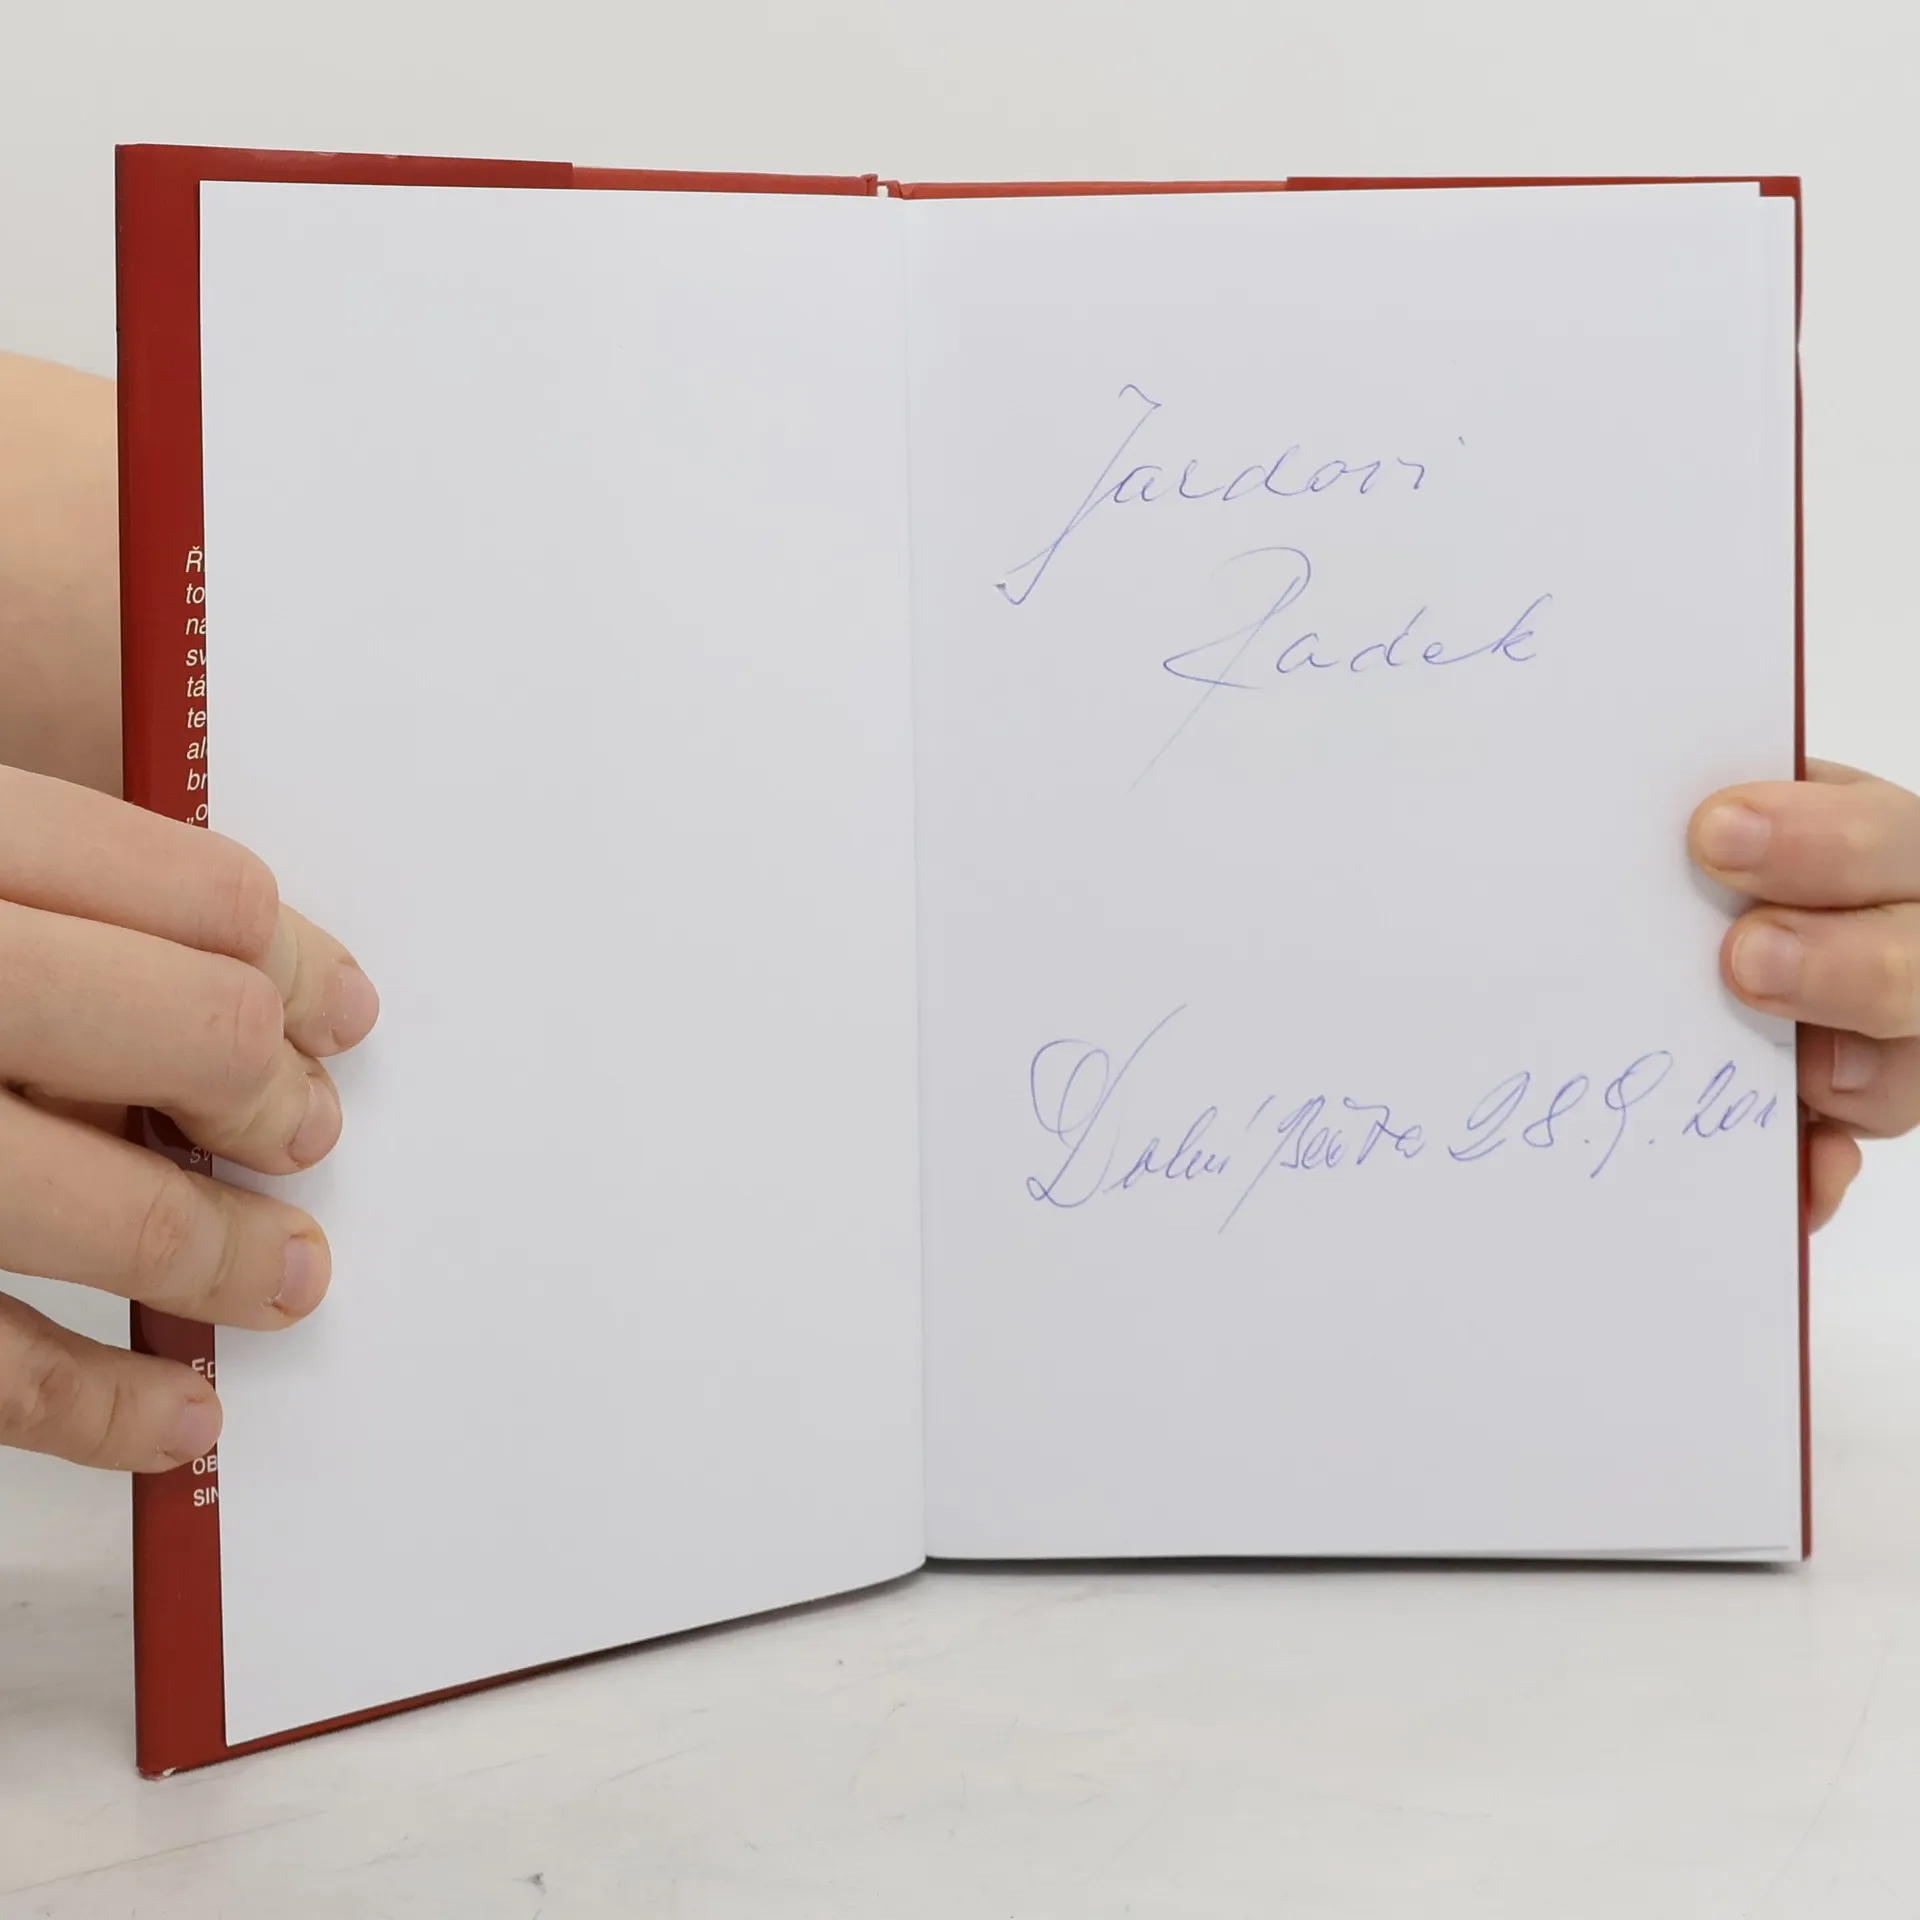 Ř
to
na
sv
tá
te
al
br
„o
sv
ED
OB
SIN
Jardovi
Radek
Dolní 28.9.201